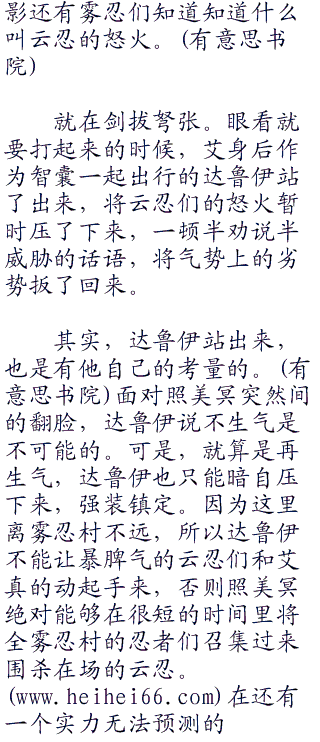 影还有雾忍们知道知道什么
叫云忍的怒火。(有意思书
院)
就在剑拔弩张。眼看就
要打起来的时候，艾身后作
为智囊一起出行的达鲁伊站
了出来，将云忍们的怒火暂
时压了下来，一顿半劝说半
威胁的话语，将气势上的劣
势扳了回来。
其实，达鲁伊站出来，
也是有他自己的考量的。(有
意思书院)面对照美冥突然间
的翻脸，达鲁伊说不生气是
不可能的。可是，就算是再
生气，达鲁伊也只能暗自压
下来，强装镇定。因为这里
离雾忍村不远，所以达鲁伊
不能让暴脾气的云忍们和艾
真的动起手来，否则照美冥
绝对能够在很短的时间里将
全雾忍村的忍者们召集过来
围杀在场的云忍。
(www.heihei66.com)在还有
一个实力无法预测的